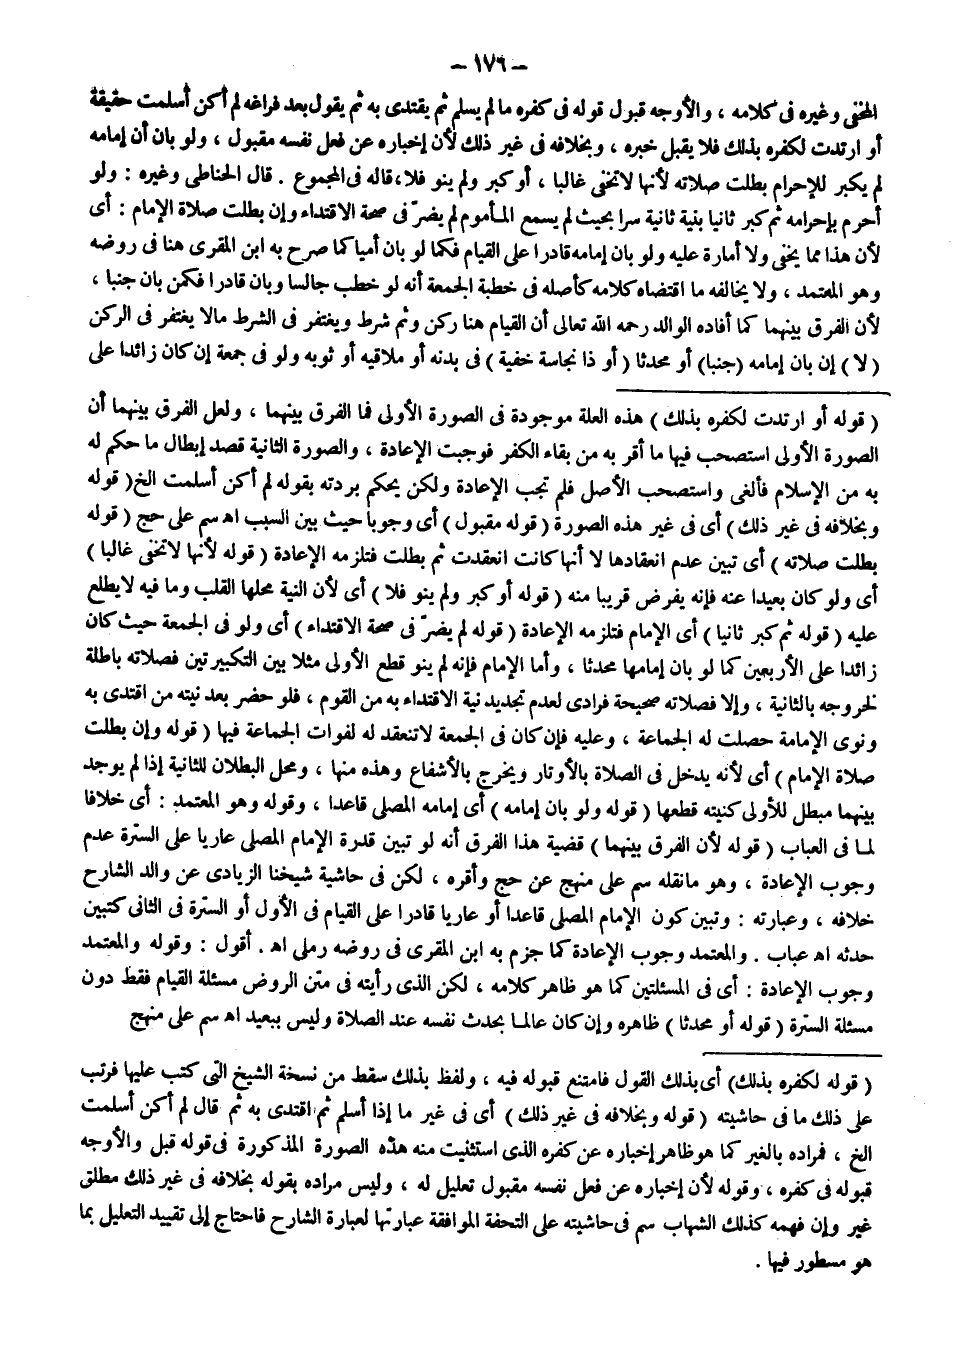 – ١٧٦ –
المخفى وغيره فى كلامه ، والأوجه قبول قوله فى كفره ما لم يسلم ثم يقتدى به ثم يقول بعد فراغه لم أكن أسلمت حقيقة
أو ارتدت لكفره بذلك فلا يقبل خبره ، وبخلافه فى غير ذلك لأن إخباره عن فعل نفسه مقبول ، ولو بان أن إمامه
لم يكبر للإحرام بطلت صلاته لأنها لا تخفى غالبا ، أو كبر ولم ينو فلا،قاله فى المجموع . قال الحناطى وغيره : ولو
أحرم بإحرامه ثم كبر ثانيا بنية ثانية سرا بحيث لم يسمع المأموم لم يضرّ فى صحة الاقتداء وإن بطلت صلاة الإمام : أى
لأن هذا مما يخفى ولا أمارة عليه ولو بان إمامه قادرا على القيام فكما لو بان أميا كما صرح به ابن المقرى هنا فى روضه
وهو المعتمد ، ولا يخالفه ما اقتضاه كلامه كأصله فى خطبة الجمعة أنه لو خطب جالسا وبان قادرا فكمن بان جنبا ،
لأن الفرق بينهما كما أفاده الوالد رحمه الله تعالى أن القيام هنا ركن وثم شرط ويغتفر فى الشرط مالا يغتفر فى الركن
( لا ) إن بان إمامه (جنبا) أو محدثا ( أو ذا نجاسة خفية ) فى بدنه أو ملاقيه أو ثوبه ولو فى جمعة إن كان زائدا على
( قوله أو ارتدت لكفره بذلك ) هذه العلة موجودة فى الصورة الأولى فما الفرق بينهما ، ولعل الفرق بينهما أن
الصورة الأولى استصحب فيها ما أقر به من بقاء الكفر فوجبت الإعادة ، والصورة الثانية قصد إبطال ما حكم له
به من الإسلام فألغى واستصحب الأصل فلم تجب الإعادة ولكن يحكم بردته بقوله لم أكن أسلمت الخ( قوله
وبخلافه فى غير ذلك ) أى فى غير هذه الصورة ( قوله مقبول ) أى وجوبا حيث بين السبب اه سم على حج ( قوله
بطلت صلاته ) أى تبين عدم انعقادها لا أنها كانت انعقدت ثم بطلت فتلزمه الإعادة ( قوله لأنها لا تخفى غالبا )
أى ولو كان بعيدا عنه فإنه يفرض قريبا منه ( قوله أو كبر ولم ينو فلا ) أى لأن النية محلها القلب وما فيه لا يطلع
عليه ( قوله ثم كبر ثانيا ) أى الإمام فتلزمه الإعادة ( قوله لم يضرّ فى صحة الاقتداء ) أى ولو فى الجمعة حيث كان
زائدا على الأربعين كما لو بان إمامها محدثا ، وأما الإمام فإنه لم ينو قطع الأولى مثلا بين التكبيرتين فصلاته باطلة
لخروجه بالثانية ، وإلا فصلاته صحيحة فرادى لعدم تجديد نية الاقتداء به من القوم ، فلو حضر بعد نيته من اقتدى به
ونوى الإمامة حصلت له الجماعة ، وعليه فإن كان فى الجمعة لا تنعقد له لفوات الجماعة فيها ( قوله وإن بطلت
صلاة الإمام ) أى لأنه يدخل فى الصلاة بالأوتار ويخرج بالأشفاع وهذه منها ، ومحل البطلان للثانية إذا لم يوجد
بينهما مبطل للأولى كنيته قطعها ( قوله ولو بان إمامه ) أى إمامه المصلى قاعدا ، وقوله وهو المعتمد : أى خلافا
لما فى العباب ( قوله لأن الفرق بينهما ) قضية هذا الفرق أنه لو تبين قدرة الإمام المصلى عاريا على السترة عدم
وجوب الإعادة ، وهو مانقله سم على منهج عن حج وأقره ، لكن فى حاشية شيخنا الزيادى عن والد الشارح
خلافه ، وعبارته : وتبين كون الإمام المصلى قاعدا أو عاريا قادرا على القيام فى الأول أو السترة فى الثانى كتبين
حدثه اه عباب . والمعتمد وجوب الإعادة كما جزم به ابن المقرى فى روضه رملى اه . أقول : وقوله والمعتمد
وجوب الإعادة : أى فى المسئلتين كما هو ظاهر كلامه ، لكن الذى رأيته فى متن الروض مسئلة القيام فقط دون
مسئلة السترة ( قوله أو محدثا ) ظاهره وإن كان عالما بحدث نفسه عند الصلاة وليس ببعيد اه سم على منهج
( قوله لكفره بذلك) أى بذلك القول فامتنع قبوله فيه ، ولفظ بذلك سقط من نسخة الشيخ التى كتب عليها فرتب
على ذلك ما فى حاشيته ( قوله وبخلافه فى غير ذلك ) أى فى غير ما إذا أسلم ثم اقتدى به ثم قال لم أكن أسلمت
الخ ، فمراده بالغير كما هو ظاهر إخباره عن كفره الذى استثنيت منه هذه الصورة المذكورة فى قوله قبل والأوجه
قبوله فى كفره ، وقوله لأن إخباره عن فعل نفسه مقبول تعليل له ، وليس مراده بقوله بخلافه فى غير ذلك مطلق
غير وإن فهمه كذلك الشهاب سم فى حاشيته على التحفة الموافقة عبارتها لعبارة الشارح فاحتاج إلى تقييد التعليل بما
هو مسطور فيها .